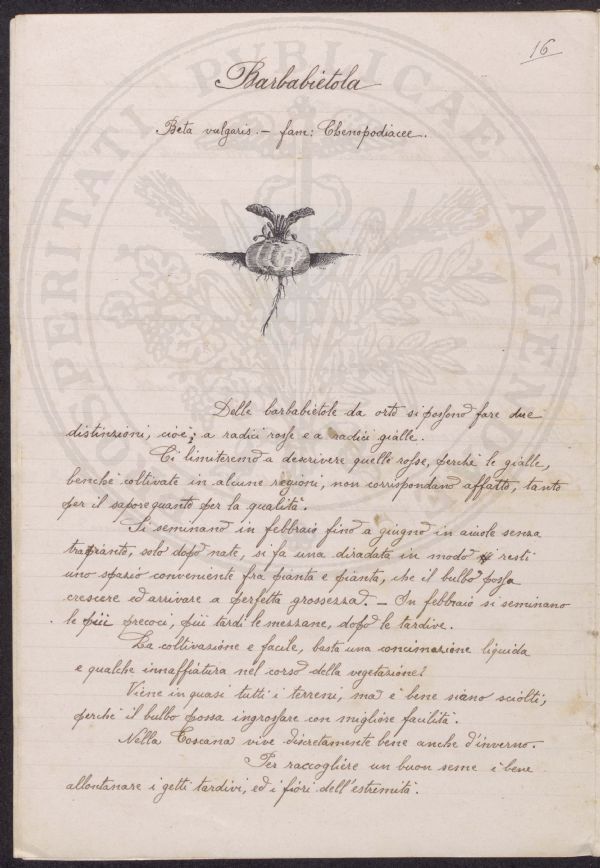 16
Barbabietola
Beta vulgaris. – fam: Chenopodiacee.
Delle barbabietole da orto si possono fare due
distinzioni, cioè; a radici rosse e a radici gialle.
Ci limiteremo a descrivere quelle rosse, perchè le gialle,
benchè coltivate in alcune regioni, non corrispondano affatto, tanto
per il sapore quanto per la qualità.
Si seminano in febbraio fino a giugno in aiuole senza
trapianto, solo dopo nate, si fa una diradata in modo resti
uno spazio conveniente fra pianta e pianta, che il bulbo possa
crescere ed arrivare a perfetta grossezza. – In febbraio si seminano
le più precoci, più tardi le mezzane, dopo le tardive.
La coltivazione e facile, basta una concimazione liquida
e qualche innaffiatura nel corso della vegetazione.
Viene in quasi tutti i terreni, ma è bene siano sciolti,
perchè il bulbo possa ingrossare con migliore facilità.
Nella Toscana vive discretamente bene anche d'inverno.
Per raccogliere un buon seme è bene
allontanare i getti tardivi, ed i fiori dell'estremità.
PROSPERITATI PVBLICAE AVGENDAE